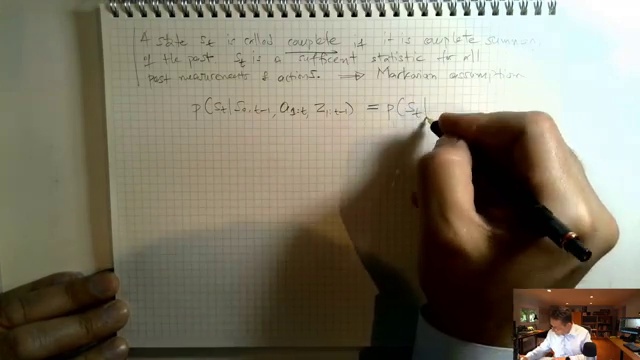 A state St is called complete if it is complete summary
of the past St is a sufficent statistic for all
past measurements & actions. ⟹ Markovian assumption
p(St|S0:t-1, a1:t, Z1:t-1) = p(St|